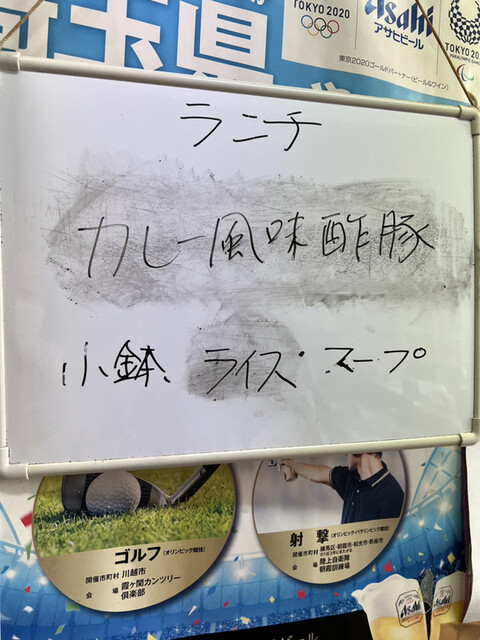 埼玉県
TOKYO 2020
Asahi
アサヒビール
TOKYO 2020
PARALYMPIC GAMES
東京2020ゴールドパートナー(ビール&ワイン)
ランチ
カレー風味酢豚
小鉢、ライス・スープ
ゴルフ(オリンピック競技)
開催市町村 川越市
会場 霞ヶ関カンツリー倶楽部
射撃(オリンピック・パラリンピック競技)
開催市町村 練馬区・朝霞市・和光市・新座市
会場 陸上自衛隊
朝霞訓練場
Asahi
Asahi